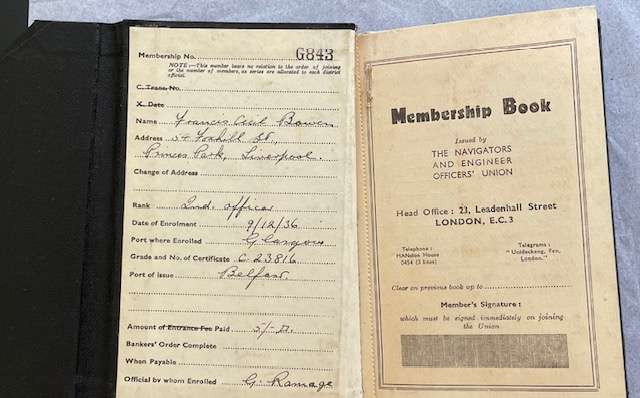 Membership No. G843
NOTE:—This number bears no relation to the order of joining
or the number of members, as series are allocated to each district
official.
C. Trans. No.
X. Date
Name Francis Cecil Bowen
Address 54 Foxhill St.,
Princes Park, Liverpool.
Change of Address
Rank 2nd. Officer
Date of Enrolment 9/12/36
Port where Enrolled Glasgow
Grade and No. of Certificate 23816
Port of issue Belfast.
Amount of Entrance Fee Paid 5/-
Bankers' Order Complete
When Payable
Official by whom Enrolled G. Ramage
Membership Book
Issued by
THE NAVIGATORS
AND ENGINEER
OFFICERS' UNION
Head Office : 23, Leadenhall Street
LONDON, E.C.3
Telephone :
MANsion House
5454 (3 lines)
Telegrams :
" Fen,
London."
Clear on previous book up to
Member's Signature :
which must be signed immediately on joining
the Union